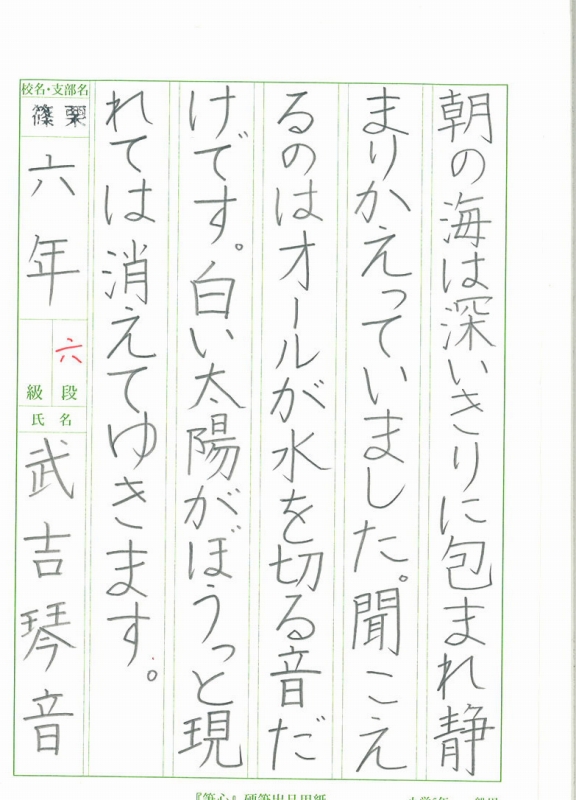 朝の海は深いきりに包まれ静
まりかえっていました。聞こえ
るのはオールが水を切る音だ
けです。白い太陽がぼうっと現
れては消えてゆきます。
校名・支部名
篠栗
六年
六
級 段
氏名
武吉琴音